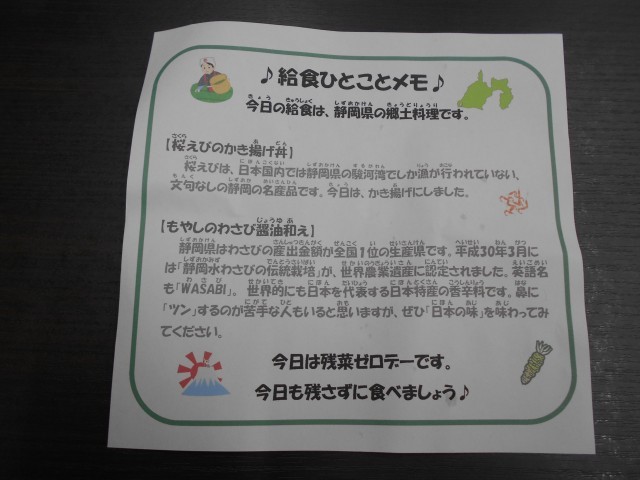 ♪給食ひとことメモ♪
今日の給食は、静岡県の郷土料理です。
【桜えびのかき揚げ丼】
桜えびは、日本国内では静岡県の駿河湾でしか漁が行われていない、
文句なしの静岡の名産品です。今日は、かき揚げにしました。
【もやしのわさび醬油和え】
静岡県はわさびの産出金額が全国1位の生産県です。平成30年3月に
は「静岡水わさびの伝統栽培」が、世界農業遺産に認定されました。英語名
も「WASABI」。世界的にも日本を代表する日本特産の香辛料です。鼻に
「ツン」するのが苦手な人もいると思いますが、ぜひ「日本の味」を味わってみ
てください。
今日は残菜ゼロデーです。
今日も残さずに食べましょう♪